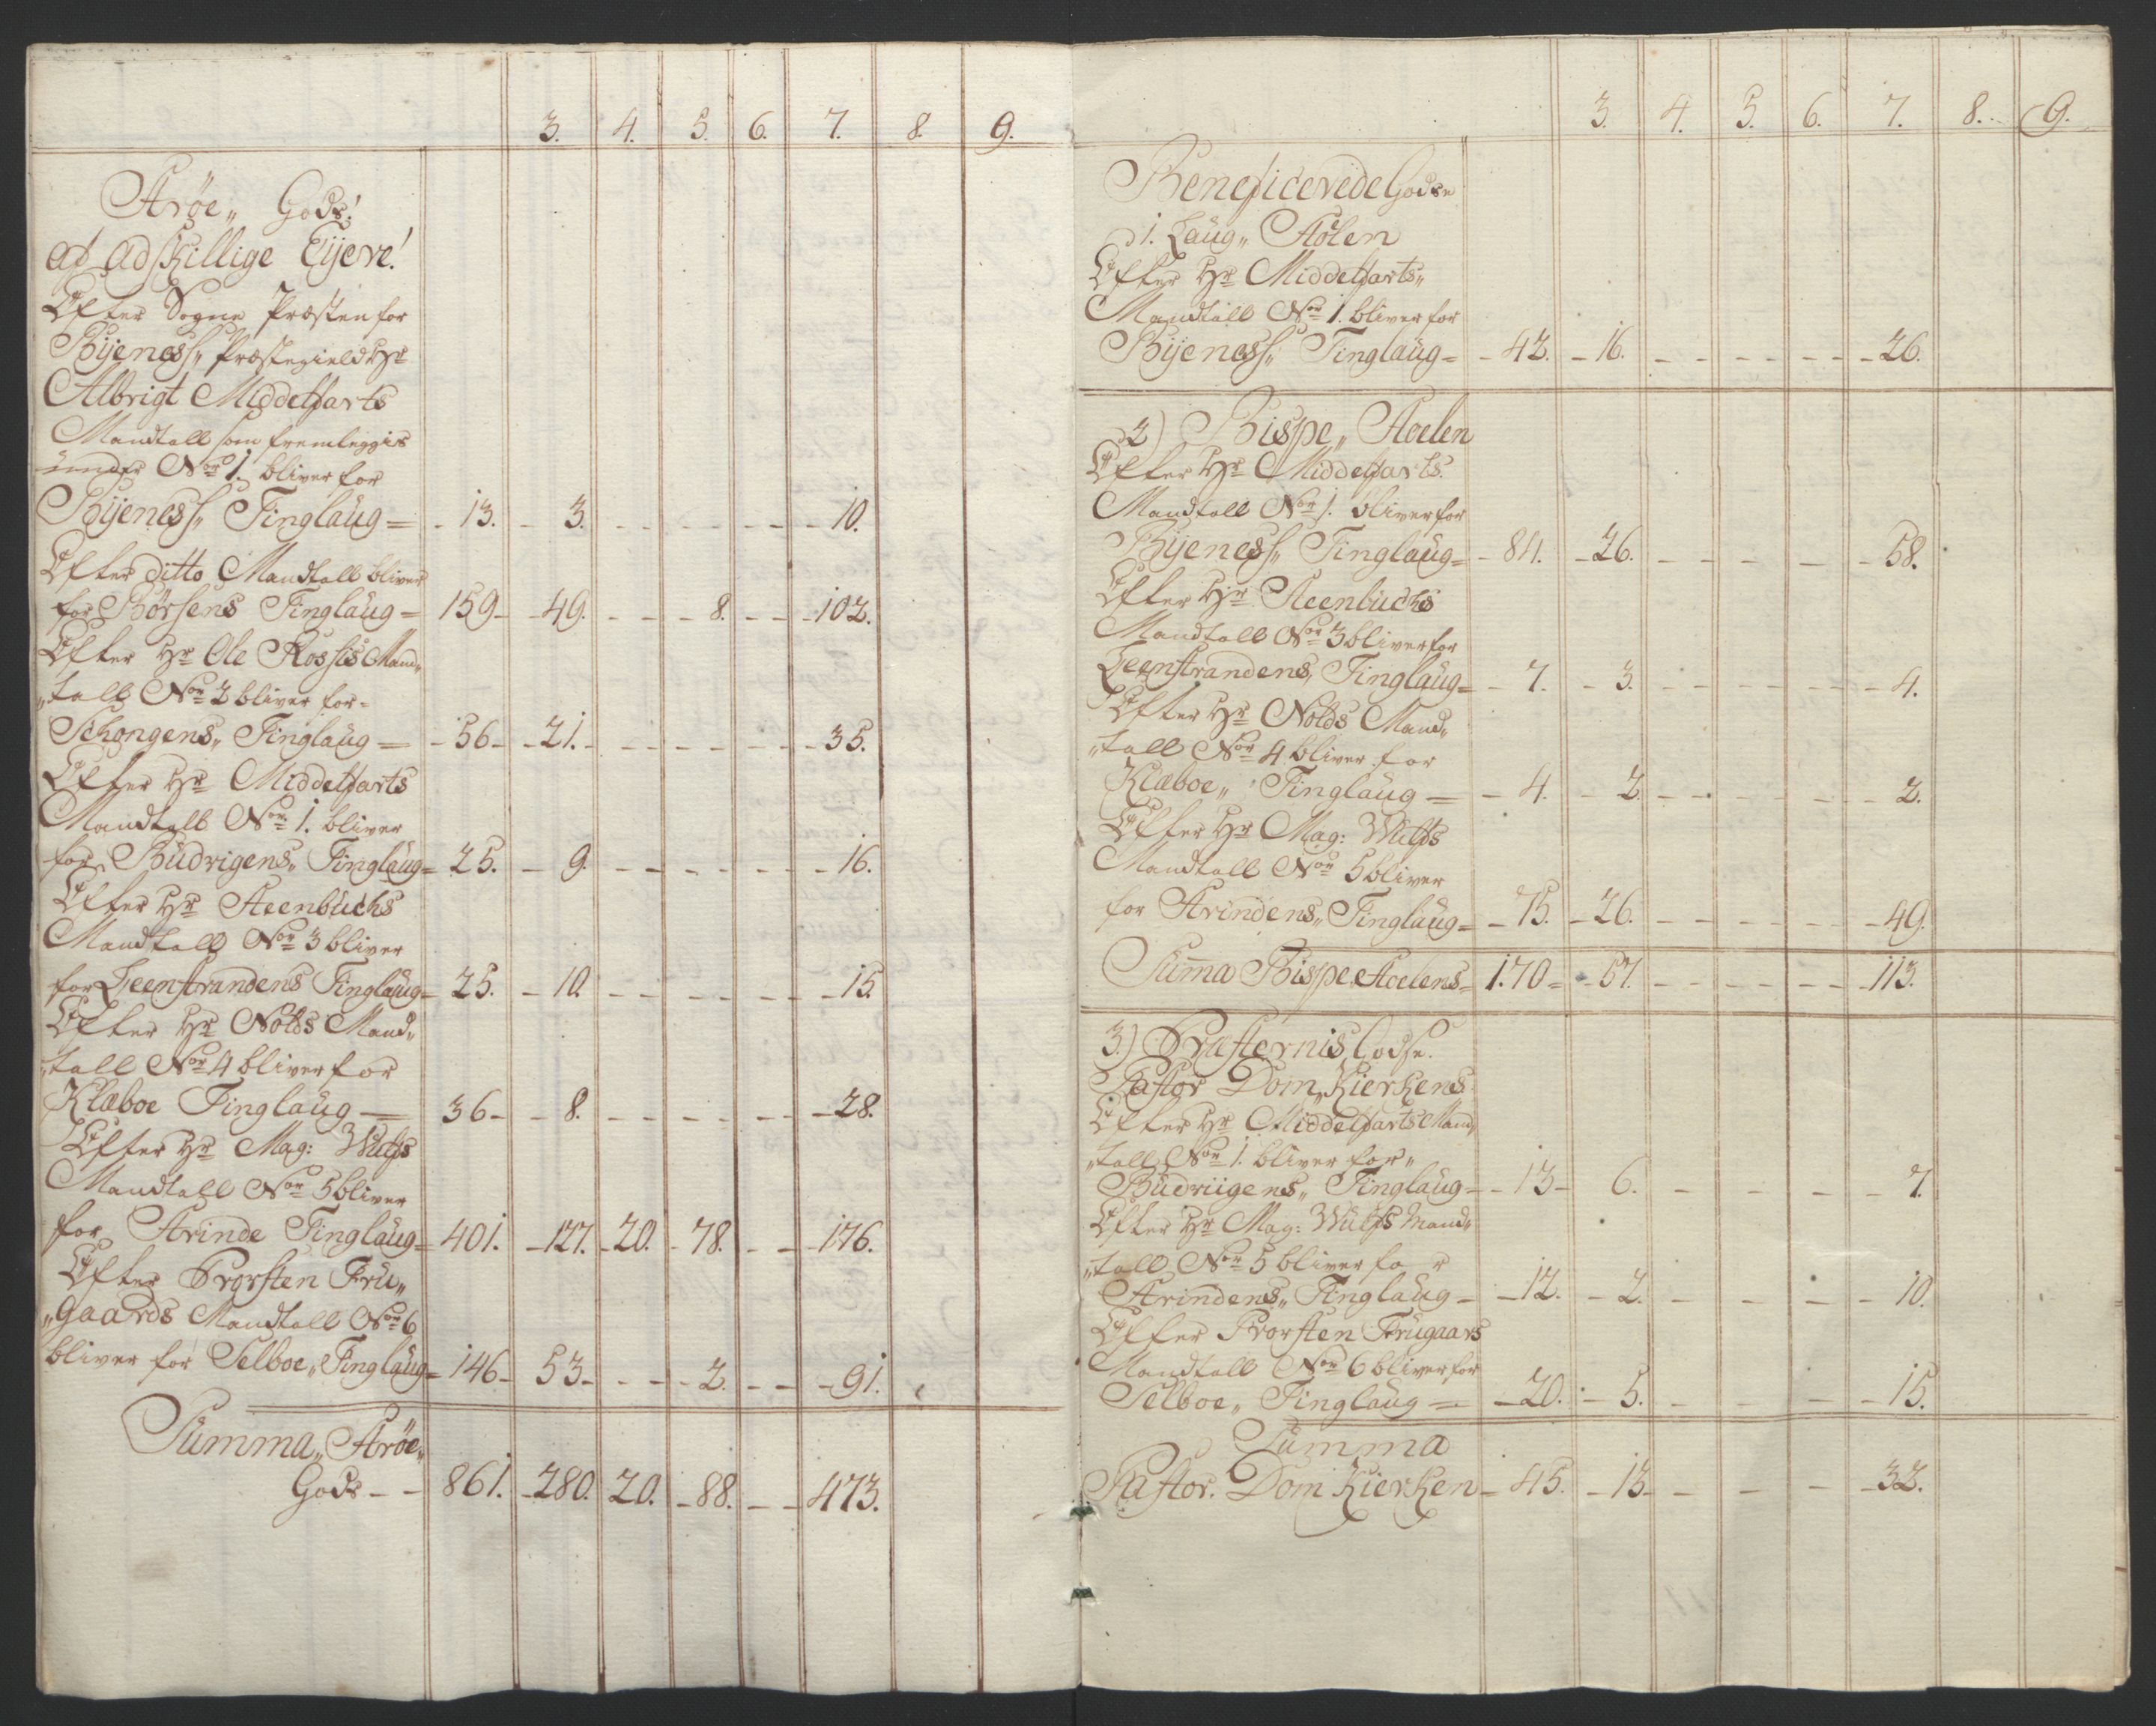 3. 4. 5. 6. 7. 8. 9.
Strøe„ Gods!
af adskillige Eijere!
Efter Sogne Præsten for
Bijeness„ Præstegield Hr
Albrigt Middelfarts
Mandtall som fremleggis
under No 1. bliver for
Bijeness„ Tinglaug = - 13. - 3. - - - - - 10.
Efter ditto Mandtall bliver
for Børsens Tinglaug = 159 - - 49. - - - 8. - - - 102.
Efter Hr Ole Rossis Mand„
„tall No 2 bliver for -
Schongens„ Tinglaug = - 56 - - 21. - - - - - - 35.
Efter Hr Middelfarts
Mandtall No 1. bliver
for Budrigens„ Tinglaug = 25. - 9. - - - - - - 16.
Efter Hr Steenbuchs
Mandtall No 3 bliver
for Leenstrandens Tinglaug - 25. - 10. - - - - - - 15.
Efter Hr Nolds Mand„
„tall No 4 bliver for
Klæboe Tinglaug — 36 - - 8. - - - - - - 28.
Efter Hr Mag: Wulfs
Mandtall No 5 bliver
for Strinde Tinglaug = 401. - 127. - 20. - 78. - - - 176.
Efter Provsten Fru„
„gaards Mandtall No 6
bliver for Selboe„ Tinglaug = 146 - 53 - - - - 2. - - - 91.
Summa„ Strøe„
Gods - - 861. - 280. 20. - 88. - - 473.
3. 4. 5. 6. 7. 8. 9.
Beneficerede Godse
1. Laug„ Stolen
Efter Hr Middelfarts„
Mandtall No 1. bliver for
Bijeness„ Tinglaug = - 42. - 16. - - - - - - 26.
2) Bispe„ Stoelen
Efter Hr Middelfarts
Mandtall No 1. bliver for
Bijeness„ Tinglaug = - 84. - 26. - - - - - 58.
Efter Hr Steenbuchs
Mandtall No 3 bliver for
Leenstrandens„ Tinglaug = - 7. - 3. - - - - - - 4.
Efter Hr Nolds Mand„
„tall No 4 bliver for
Klæboe„ Tinglaug — - 4. - 2. - - - - - 2.
Efter Hr Mag: Wulfs
Mandtall No 5 bliver
for Strindens„ Tinglaug = - 75. - 26. - - - - - 49.
Summa Bispe Stoelens = 170 = - 57. - - - - - - 113.
3.) Præsternis Godse.
Pastor Dom„ Kierkens
Efter Hr Middelfarts Mand„
„tall No 1. bliver for„
Budriigens„ Tinglaug - - 13 - 6. - - - - 7.
Efter Hr Mag: Wulfs Mand„
„tall No 5 bliver for
Strindens„ Tinglaug - - 12. - 2. - - - - 10.
Efter Provsten Frugaars
Mandtall No 6 bliver for
Selboe„ Tinglaug = - 20. - 5. - - - - 15.
Summa
Pastor. Dom Kierken - 45. - 13 - - - - - 32.